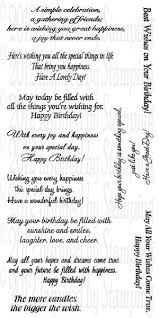 A simple celebration,
a gathering of friends;
here is wishing you great happiness,
a joy that never ends.
Here's wishing you all the special things in life
That bring you happiness.
Have A Lovely Day!
May today be filled with
all the things you're wishing for.
Happy Birthday!
With every joy and happiness
on your special day.
Happy Birthday!
Wishing you every happiness
this special day brings.
Have a wonderful birthday!
May your birthday be filled with
sunshine and smiles,
laughter, love, and cheer.
May all your hopes and dreams come true
and your future be filled with happiness.
Happy Birthday!
The more candles,
the bigger the wish.
Best Wishes on Your Birthday!
May All Your Wishes Come True.
Happy Birthday!